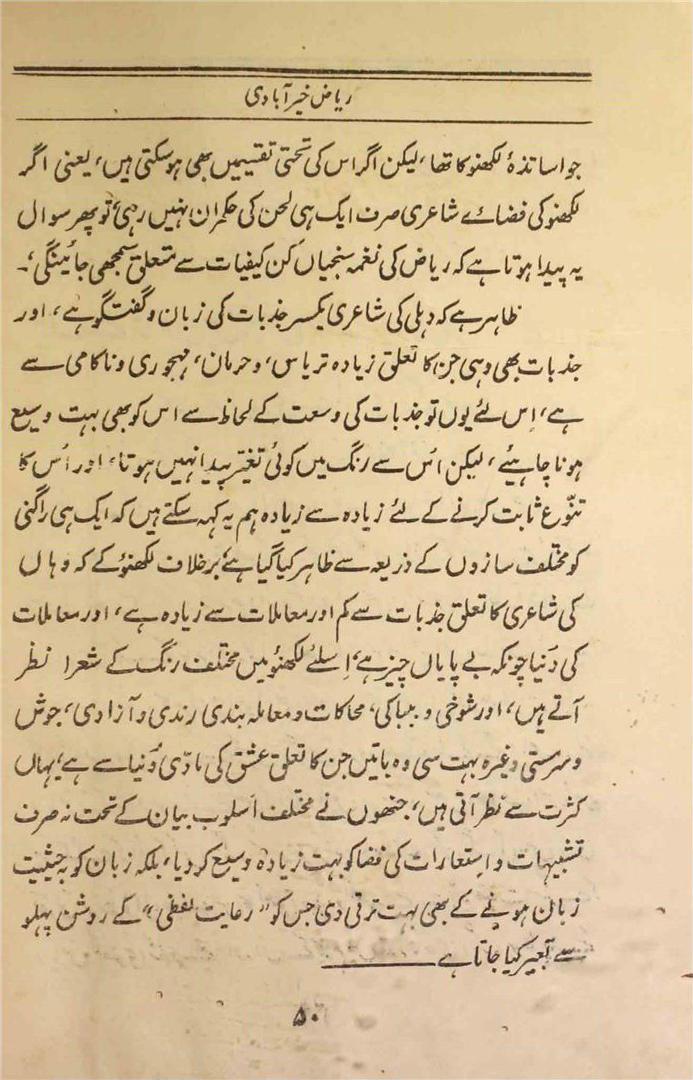 ریاض خیرآبادی
جو اساتذۂ لکھنو کا تھا، لیکن اگر اس کی تحتی تقسیمیں بھی ہو سکتی ہیں، یعنی اگر
لکھنو کی فضائے شاعری صرف ایک ہی لحن کی حکمران نہیں رہی، تو پھر سوال
یہ پیدا ہوتا ہے کہ ریاض کی نغمہ سنجیاں کن کیفیات سے متعلق سمجھی جائینگی،۔
ظاہر ہے کہ دہلی کی شاعری یکسر جذبات کی زبان و گفتگو ہے، اور
جذبات بھی وہی جن کا تعلق زیادہ تر یاس، و حرمان، مہجوری و ناکامی سے
ہے، اِس لئے یوں تو جذبات کی وسعت کے لحاظ سے اس کو بھی بہت وسیع
ہونا چاہیئے، لیکن اُس سے رنگ میں کوئی تغیّر پیدا نہیں ہوتا، اور اُس کا
تنّوع ثابت کرنے کے لئے زیادہ سے زیادہ ہم یہ کہہ سکتے ہیں کہ ایک ہی راگنی
کو مختلف سازوں کے ذریعہ سے ظاہر کیا گیا ہے، برخلاف لکھنؤ کے کہ وہاں
کی شاعری کا تعلق جذبات سے کم اور معاملات سے زیادہ ہے، اور معاملات
کی دُنیا چونکہ بے پایاں چیز ہے، اِسلئے لکھنؤ میں مختلف رنگ کے شعرا نظر
آتے ہیں، اور شوخی و بیباکی، محاکات و معاملہ بندی رندی و آزادی، جوش
و سرمستی وغیرہ بہت سی وہ باتیں جن کا تعلق عشق کی مادّی دُنیا سے ہے، یہاں
کثرت سے نظر آتی ہیں، جنھوں نے مختلف اُسلوب بیان کے تحت نہ صرف
تشبیہات و اِستعارات کی فضا کو بہت زیادہ وسیع کر دیا، بلکہ زبان کو بہ حیثیت
زبان ہونے کے بھی بہت ترقی دی جس کو "رعایت لفظی" کے روشن پہلو
سے تعبیر کیا جاتا ہے ـــــــ
۵۰